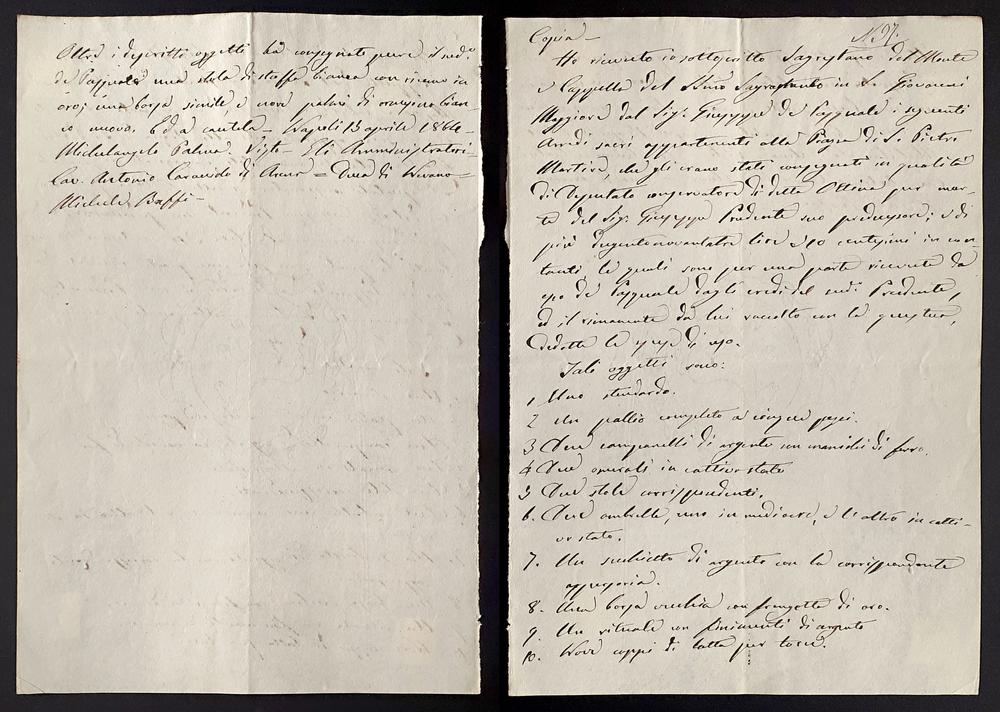 Oltre i descritti oggetti ha consegnato pure il sud.º
de Pasquale una stola di stoffa bianca con ricamo in
oro; una borsa simile e nove palmi di ormesino bian-
co nuovo. Ed a cautela – Napoli 13 aprile 1864 –
Michelangelo Palma. Visto – Gli Amministratori –
Cav. Antonio Caracciolo di = Duca di
Michele Baffi –
Copia –
N. 97.
Ho ricevuto io sottoscritto Sagrestano del Monte
e Cappella del SSmo Sagramento in S. Giovanni
Maggiore dal Sig.r Giuseppe de Pasquale i seguenti
Arredi sacri appartenenti alla di S. Pietro
Martire, che gli erano stati consegnati in qualità
di Deputato conservatore di detta Ottina per mor-
te del Sig.r Giuseppe Prudente suo predecessore; e di
più dugentonovantatre lire e 90 centesimi in con-
tanti, le quali sono per una parte ricevute da
esso de Pasquale dagli eredi del sud.º Prudente,
ed il rimanente da lui raccolto con la questua,
dedotte le spese di uso.
Tali oggetti sono:
1 Uno stendardo.
2 Un pallio completo a cinque pezzi.
3 Due campanelli di argento con manichi di ferro.
4 Due omerali in cattivo stato
5 Due stole corrispondenti.
6. Due ombrelle, uno in mediocre, e l'altro in catti-
vo stato.
7. Un secchietto di argento con la corrispondente
8. Una borsa vecchia con frangette di oro.
9 Un rituale con finimenti di argento
10. Nove coppi di latta per torce.